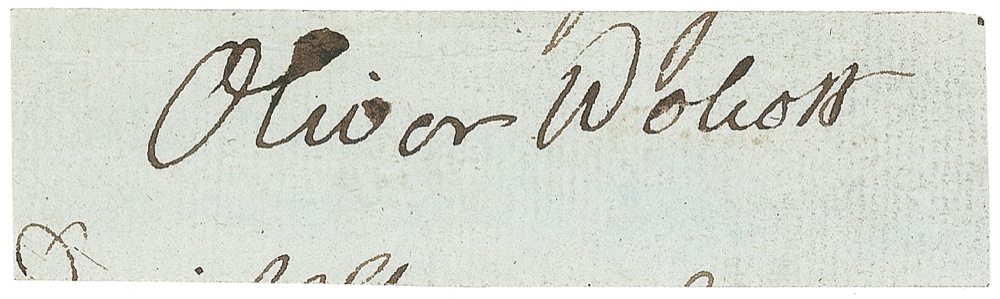 Oliver Wolcott